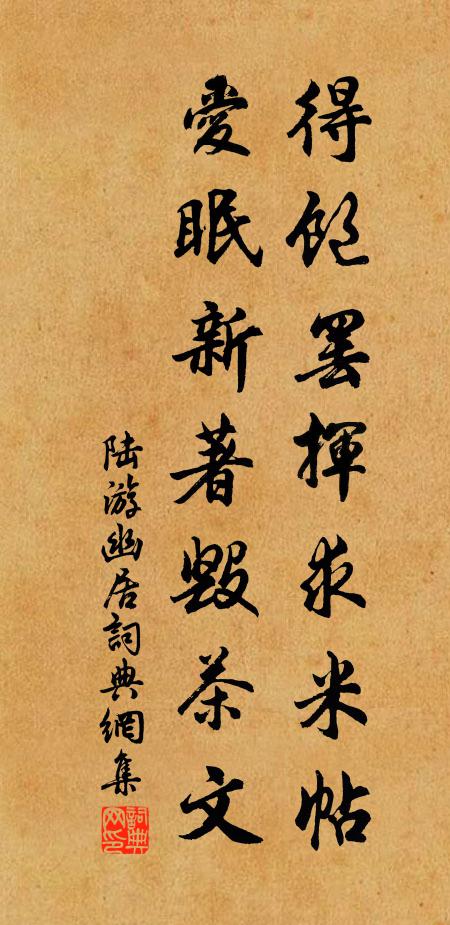 得飽罷揮求米帖
愛眠新著毀茶文
陸游幽居詞典網集
詞典网印